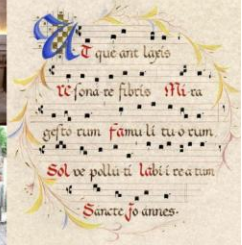 UT que ant laxis
re sona re fibris Mi ra
gesto rum famu li tu o rum.
Sol ve pollu ti labi i re a tum
Sancte Jo annes.